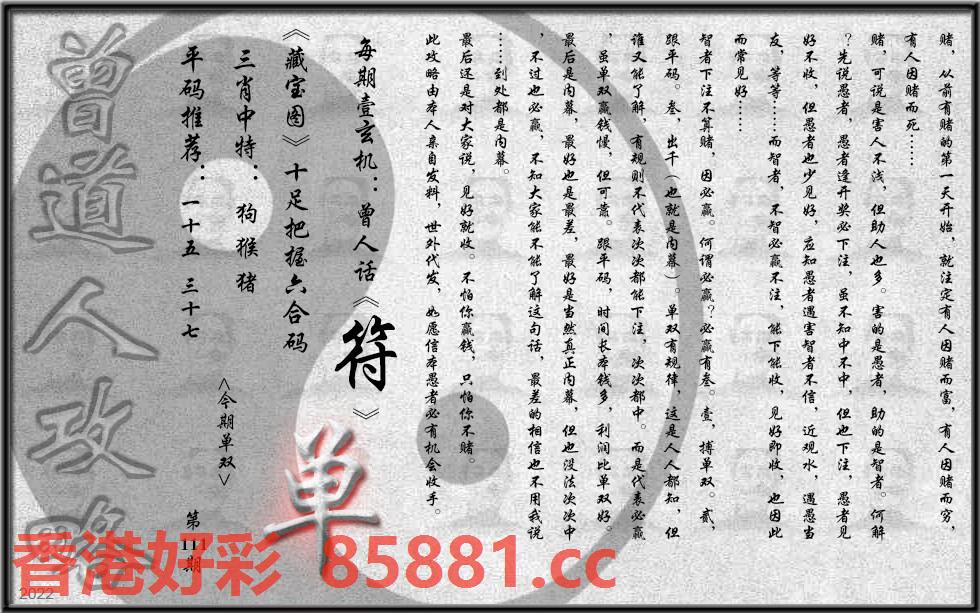 赌，从前有赌的第一天开始，就注定有人因赌而富，有人因赌而穷，
有人因赌而死……
赌，可说是害人不浅，但助人也多。害的是愚者，助的是智者。何解
？先说愚者，愚者逢开奖必下注，虽不知中不中，但也下注，愚者见
好不收，但愚者也少见好，应知愚者遇害智者不信，近观水，遇愚当
友，等等……而智者，不智必赢不注，能下能收，见好即收，也因此
而常见好……
智者下注不算赌，因必赢。何谓必赢？必赢有叁。壹，搏单双。贰，
跟平码。叁，出千（也就是内幕）。单双有规律，这是人人都知，但
谁又能了解，有规则不代表次次都能下注，次次都中。而是代表必赢
，虽单双赢钱慢，但可靠。跟平码，时间长本钱多，利润比单双好。
最后是内幕，最好也是最差，最好是当然真正内幕，但也没法次次中
，不过也必赢，不知大家能不能了解这句话，最差的相信也不用我说
……到处都是内幕。
最后还是对大家说，见好就收。不怕你赢钱，只怕你不赌。
此攻略由本人亲自发料，世外代发，如愿信本愚者必有机会收手。
每期壹玄机：曾人话《符》
《藏宝图》十足把握六合码
三肖中特：狗猴猪
平码推荐：一十五 三十七
<今期单双>
单
第111期
曾道人攻略
香港好彩 85881.cc
2022